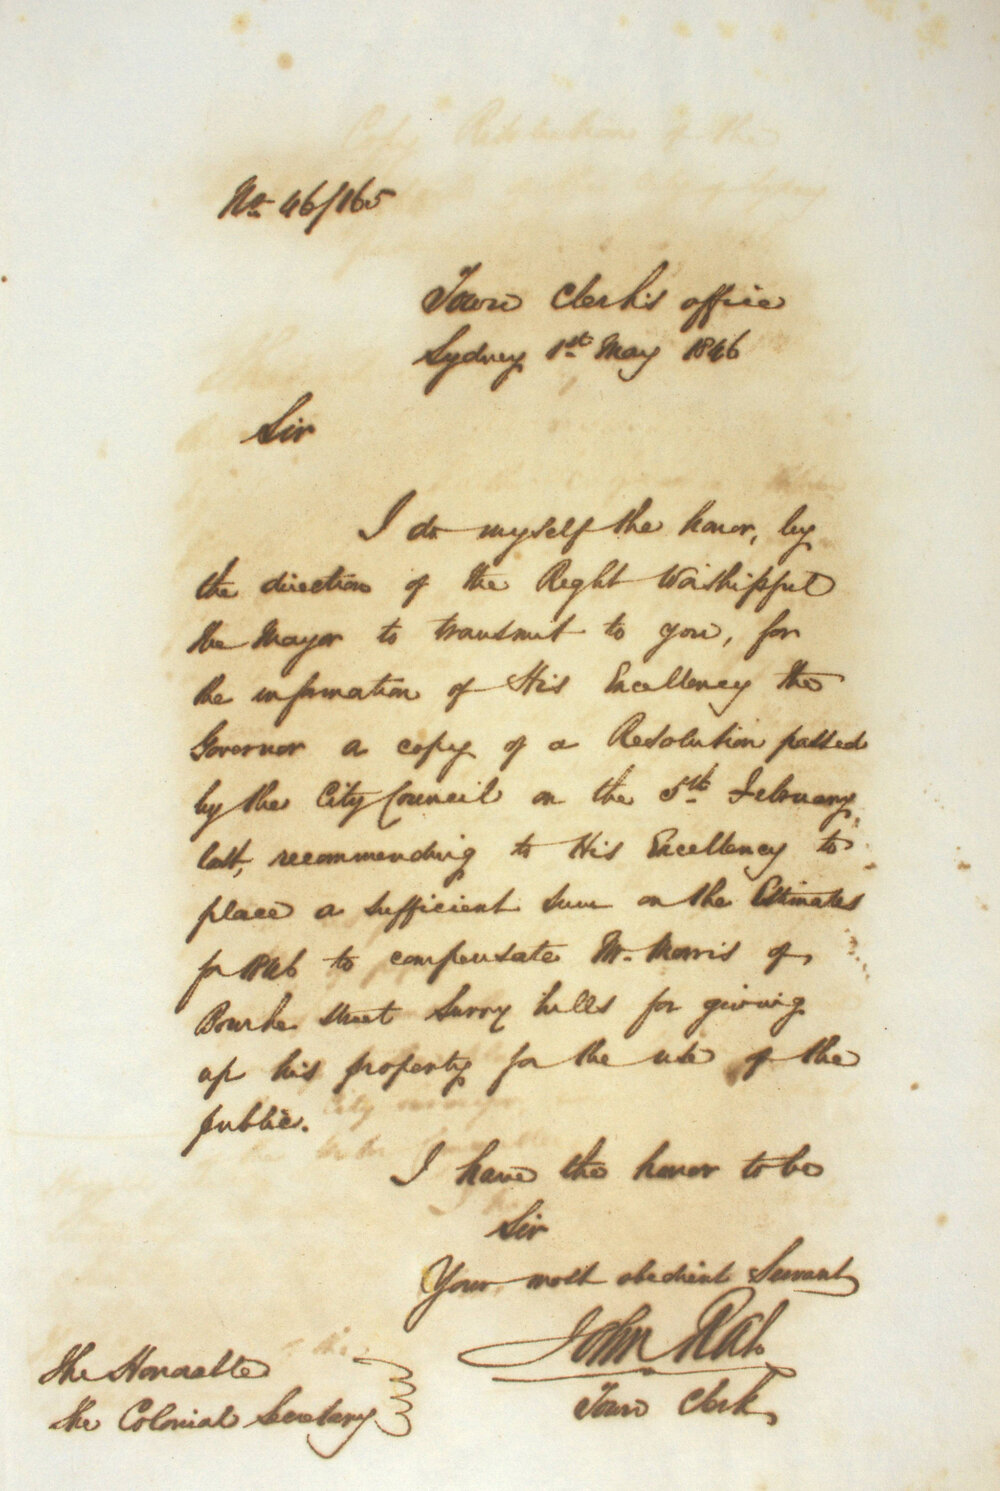 No. 46/165
Town Clerk's office
Sydney 1st May 1846
Sir
I do myself the honor, by
the direction of the Right Worshipful
the Mayor to transmit to you, for
the information of His Excellency the
Governor a copy of a Resolution passed
by the City Council on the 5th February
last, recommending to His Excellency to
place a sufficient sum on the Estimates
for 1846 to compensate Mr. Morris of
Bourke street Surry hills for giving
up his property for the use of the
public.
I have the honor to be
Sir
Your most obedient Servant
John
Town Clerk
The Honorable
the Colonial Secretary